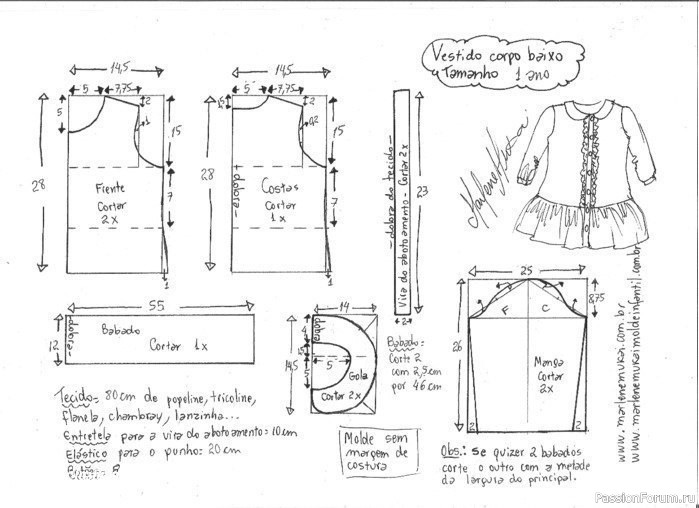 Vestido corpo baixo
Tamanho 1 ano
14,5
5
7,75
5
2
1
15
28
Frente
Cortar
2x
7
1
14,5
5
7,75
1,5
2
0,2
15
28
dobra
Costas
Cortar
1x
7
1
dobra do tecido
Vira do abotoamento - Cortar 2x
23
2
Marlene Mukai
55
12
dobra
Babado
Cortar 1x
14
dobra
4
1,5
5
5
14,5
Gola
Cortar 2x
Babado:
Corte 2
com 2,5cm
por 46cm
25
8,75
F
C
26
Manga
Cortar
2x
2
2
www.marlenemukai.com.br
www.marlenemukaimoldeinfantil.com.br
Tecido= 80cm de popeline, tricoline,
flanela, chambray, lanzinha...
Entretela para a vira do abotoamento= 10cm
Elástico para o punho= 20cm
Molde sem
margem de
costura
Obs.: Se quizer 2 babados
corte o outro com a metade
da largura do principal.
PassionForum.ru